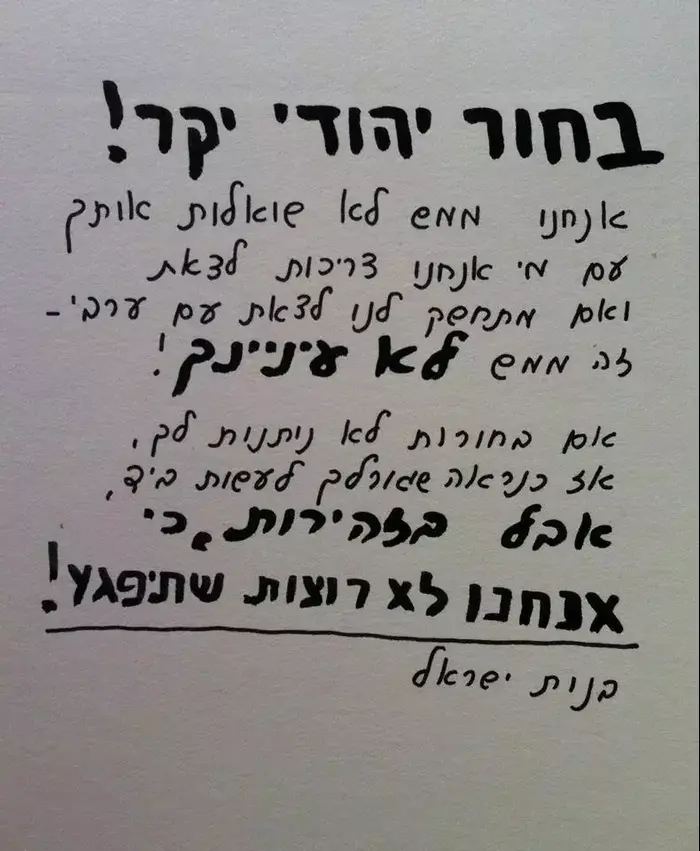 בחור יהודי יקר!
אנחנו ממש לא שואלות אותך
עם מי אנחנו צריכות לצאת
ואם מתחשק לנו לצאת עם ערבי -
זה ממש לא עיניינך!
אם בחורות לא ניתנות לך,
אז כנראה שגורלך לעשות ביד,
אבל בזהירות, כי
אנחנו לא רוצות שתיפגע!
בנות ישראל